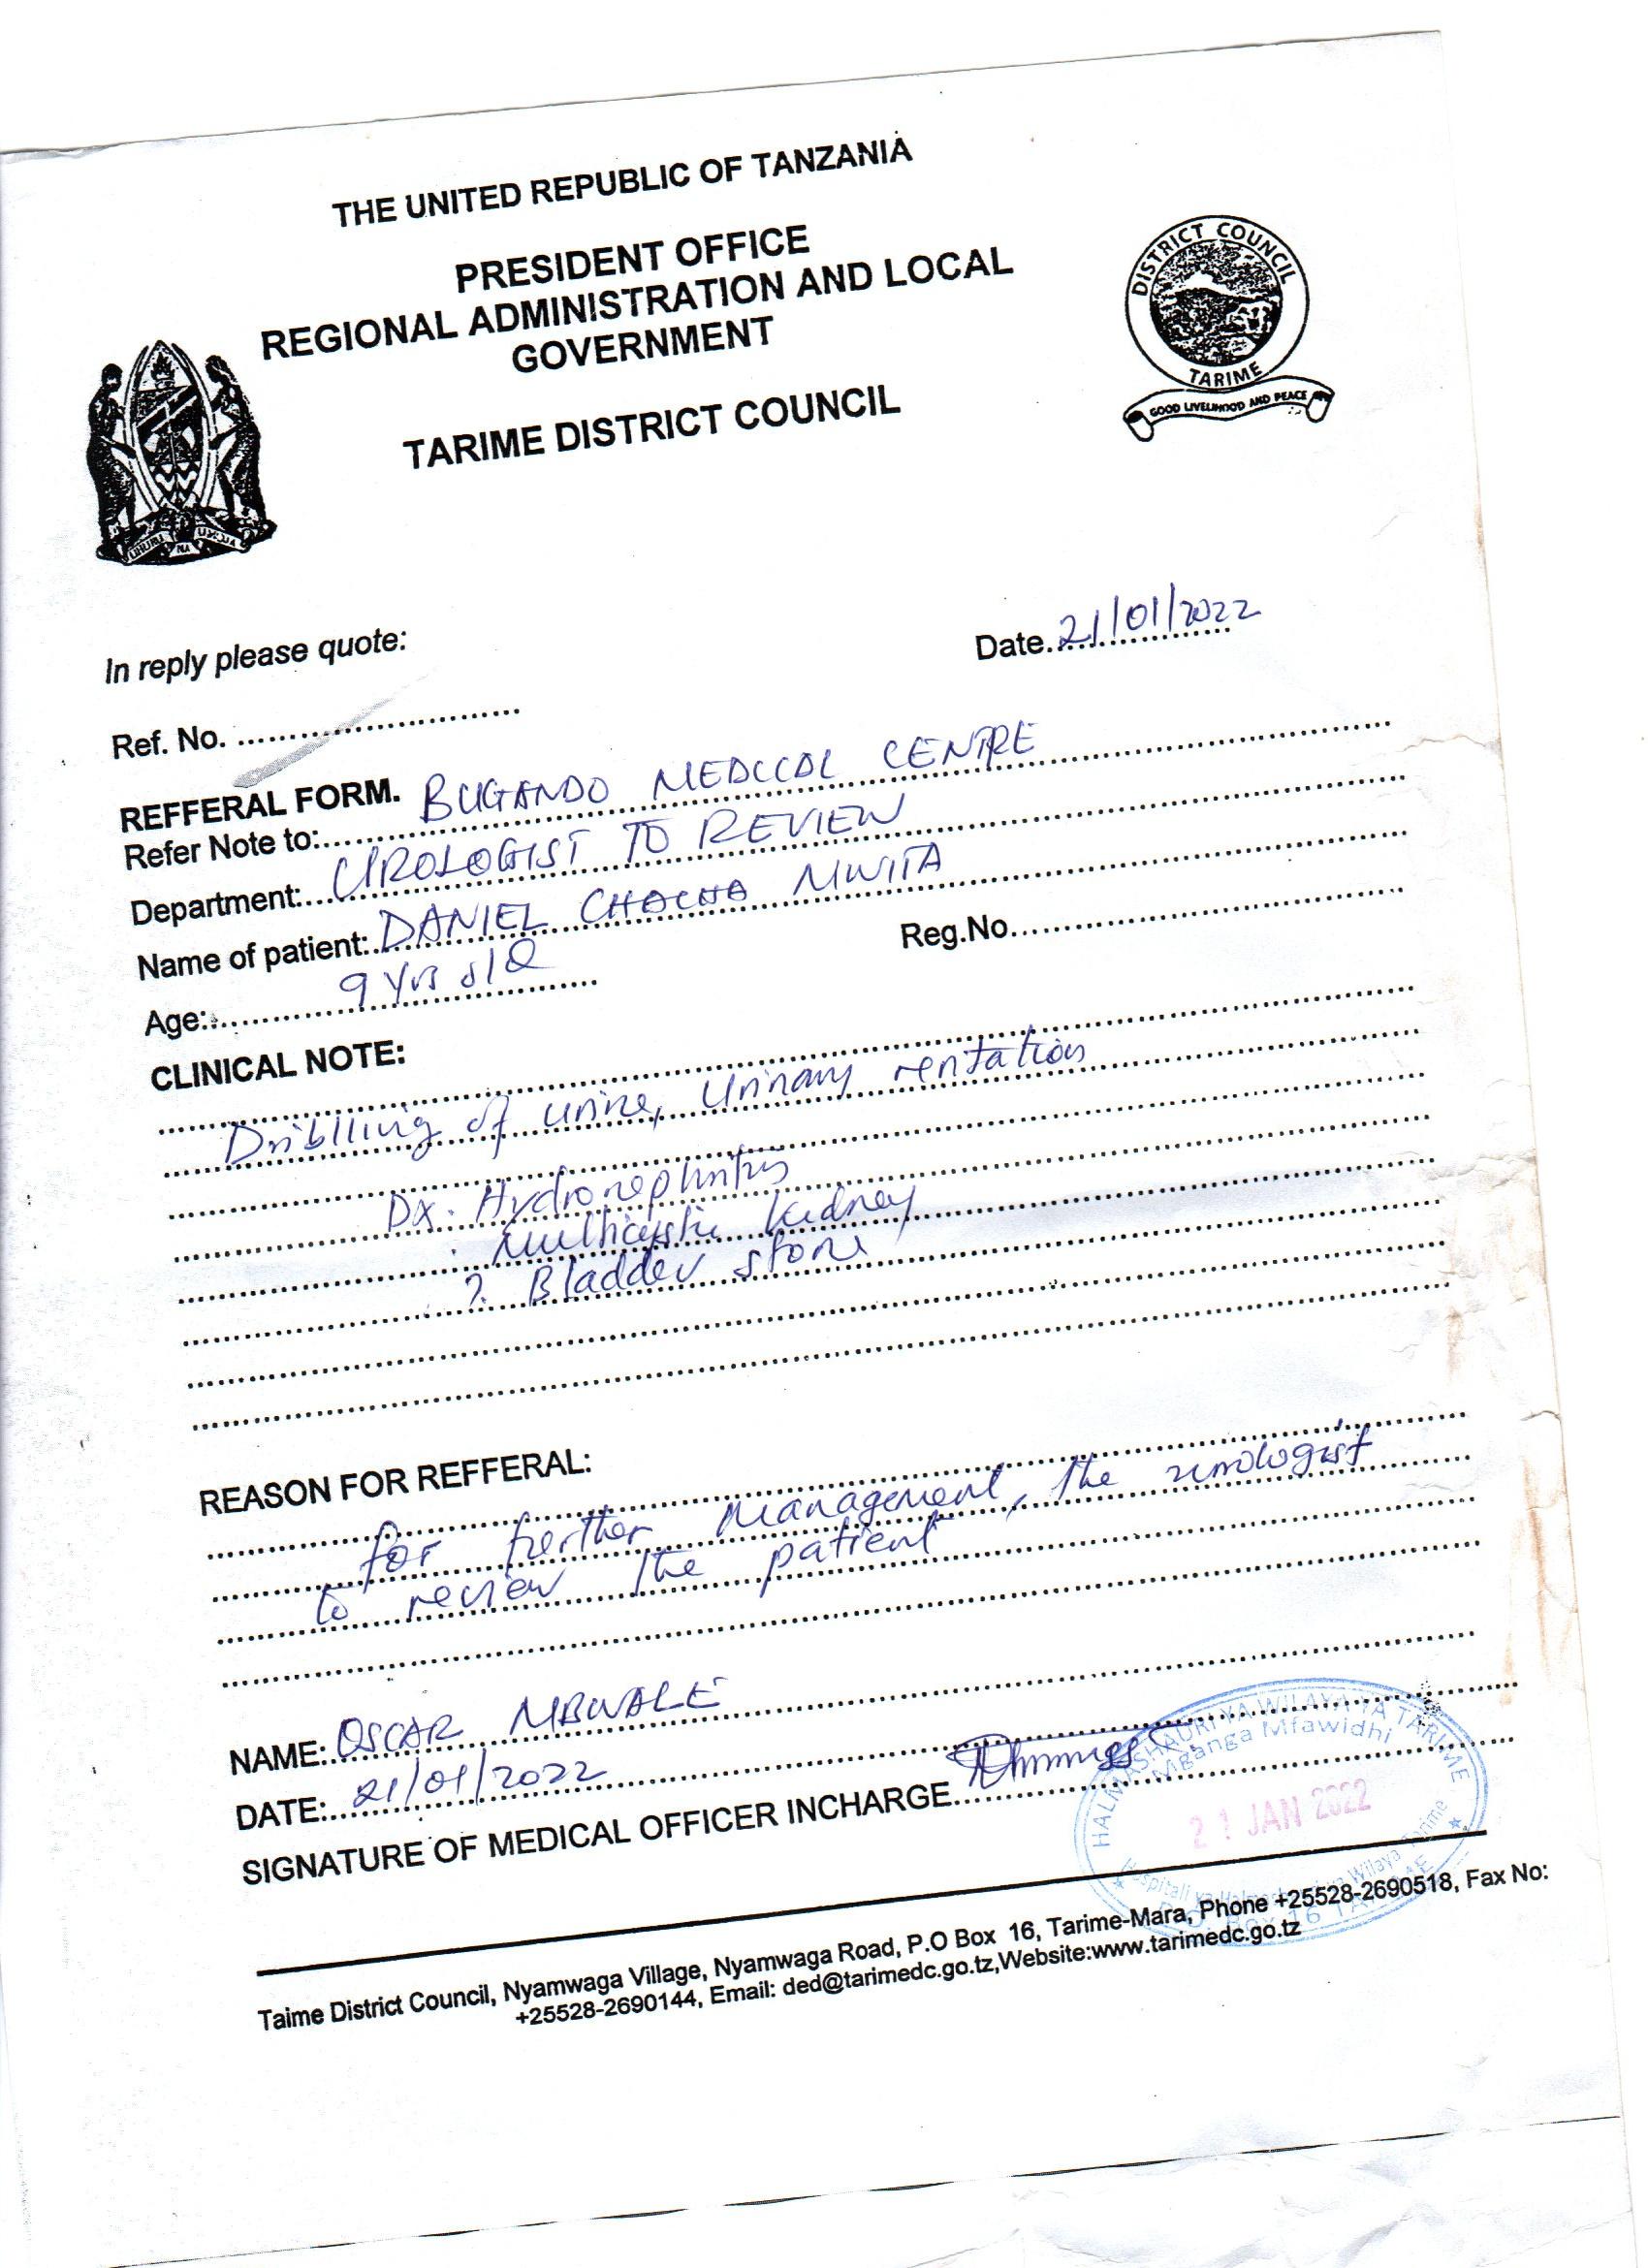 THE UNITED REPUBLIC OF TANZANIA
PRESIDENT OFFICE
REGIONAL ADMINISTRATION AND LOCAL
GOVERNMENT
TARIME DISTRICT COUNCIL
DISTRICT COUNCIL
TARIME
GOOD LIVELIHOOD AND PEACE
UHURU NA UMOJA
In reply please quote:
Date. 21/01/2022
Ref. No. ..............................
REFFERAL FORM.
Refer Note to: BUGANDO MEDICAL CENTRE
Department: UROLOGIST TO REVIEW
Name of patient: DANIEL CHACHA MWITA
Age: 9 yrs old Reg.No..............................
CLINICAL NOTE:
Driblling of urine, Urinary rentation
Dx. Hydronephritis
. Multicystic kidney
? Bladder stone
REASON FOR REFFERAL:
for further management, the urologist
to review the patient
NAME: OSCAR MBWALE
DATE: 21/01/2022
SIGNATURE OF MEDICAL OFFICER INCHARGE
HALMASHAURI YA WILAYA YA TARIME
Mganga Mfawidhi
21 JAN 2022
Hospitali ya Halmashauri ya Wilaya Tarime
P.O. Box 16 TARIME
Taime District Council, Nyamwaga Village, Nyamwaga Road, P.O Box 16, Tarime-Mara, Phone +25528-2690518, Fax No:
+25528-2690144, Email: ded@tarimedc.go.tz,Website:www.tarimedc.go.tz